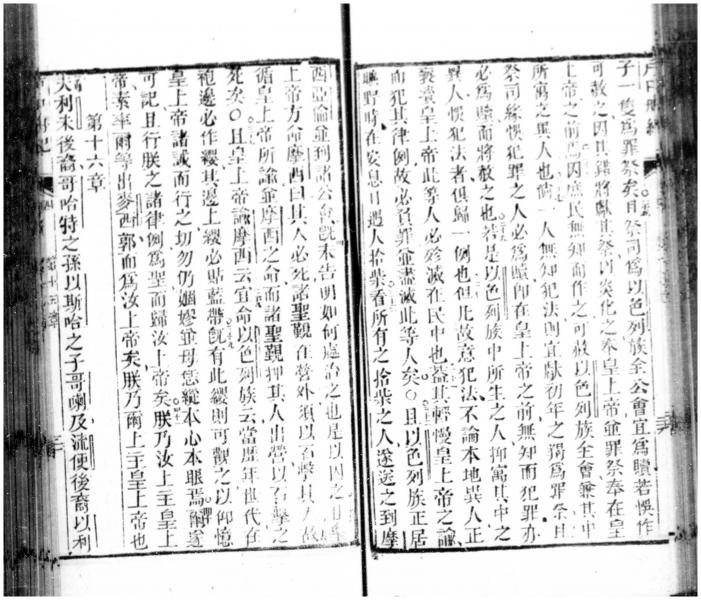 子一隻爲罪祭矣且祭司爲以色列族全公會宜爲贖若悞作
可赦之因其錯將獻其祭以炎化之奉皇上帝並罪祭奉在皇
上帝之前爲因庶民無知而作之可赦以色列族全會兼其中
所寓之異人也倘一人無知犯法則宜獻初年之猏爲罪祭且
祭司緣悞犯罪之人必爲贖卽在皇上帝之前無知而犯罪亦
必爲贖而將赦之也若是以色列族中所生之人抑寓其中之
異人悞犯法者俱歸一例也但凡故意犯法不論本地異人正
褻瀆皇上帝此等人必殄滅在民中也蓋其輕慢皇上帝之諭
而犯其律例故必召罪並盡滅此等人矣○且以色列族正居
曠野時在安息日遇人拾柴看所有之拾柴之人遂送之到摩
西亞倫並到諸公會旣未告明如何處治之也是以囚之
上帝方命摩西曰其人必死諸聖覲在營外須以石擊其人故
循皇上帝所諭並摩西之命而諸聖覲押其人出營以石擊之
死矣○且皇上帝諭摩西云宜命以色列族云當歷年世代在
袍邊必作纓其邊上纓必貼藍帶旣有此纓則可觀之以仰憶
皇上帝諸誡而行之切勿仍婟嫪並毋恁縱本心本眼焉爾遂
可記且行朕之諸律例爲聖而歸汝上帝矣朕乃汝上主皇上
帝素率爾等出麥西郭而爲汝上帝矣朕乃爾上主皇上帝也
第十六章
夫利未後裔哥哈特之孫以斯哈之子哥喇及流便後裔以利
第十五章